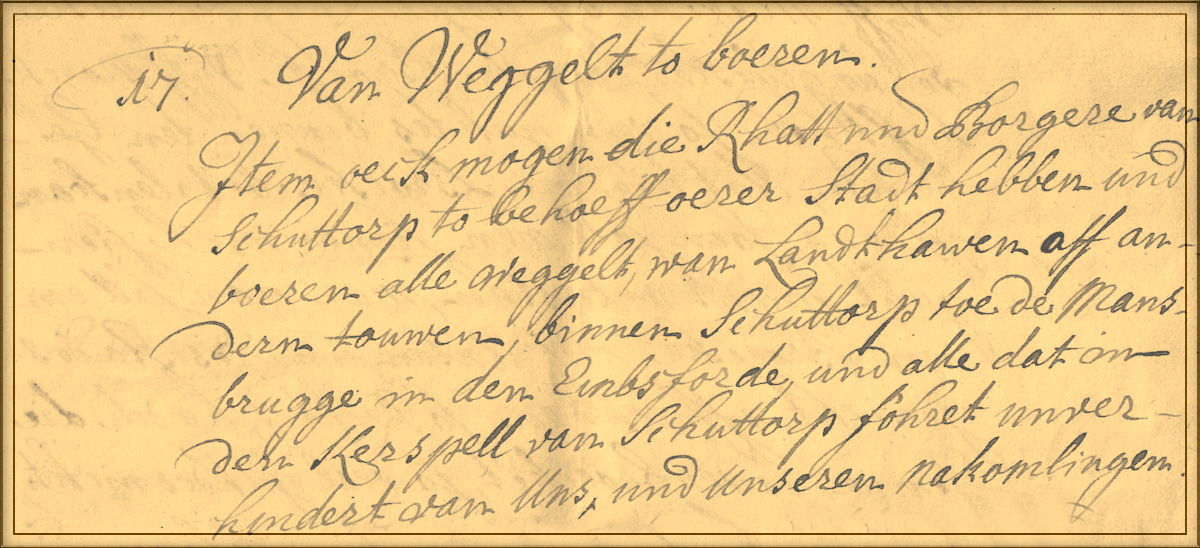 17. Van Weggelt to boeren.
Item oeck mogen die Rhatt und Borgere van
Schuttorp to behoeff oerer Stadt hebben und
boeren alle weggelt, van Landthawen aff an-
dern touwen, binnen Schuttorp toe de Mans-
brugge in den Embsforde, und alle dat in
den Kerspell van Schuttorp föhret unver-
hindert van Uns, und Unseren nakomlingen.